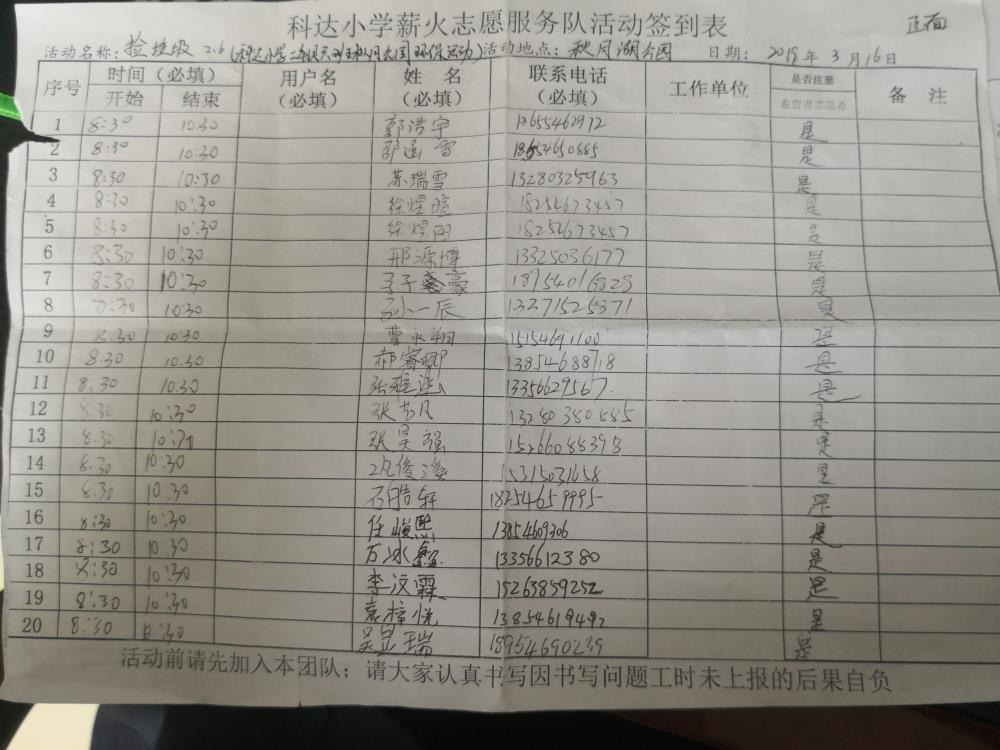 科达小学薪火志愿服务队活动签到表 正面
活动名称：捡垃圾 2.6 活动地点：秋月湖公园 日期：2019年3月16日
序号 时间（必填） 用户名（必填） 姓名（必填） 联系电话（必填） 工作单位 是否注册东营市志愿者 备注
开始 结束
1 8:30 10:30 郭浩宇 13655462972 是
2 8:30 10:30 邵涵雪 18654650885 是
3 8:30 10:30 苏瑞雪 13280325963 是
4 8:30 10:30 徐煜暄 18254673457 是
5 8:30 10:30 徐煜阳 18254673457 是
6 8:30 10:30 邢源博 13325036177 是
7 8:30 10:30 王子豪 18954016823 是
8 8:30 10:30 孙一辰 13271525871 是
9 8:30 10:30 曹永翔 15154691100 是
10 8:30 10:30 郝睿卿 13854688718 是
11 8.30 10.30 张 13356629567 是
12 8.30 10:30 张艺凡 13280380885 是
13 8.30 10:30 张昊强 15266088398 是
14 8.30 10:30 15315031658 是
15 8.30 10:30 石皓轩 18254659995 是
16 8:30 10:30 任峻熙 13854609306 是
17 8:30 10:30 万冰鑫 13356612380 是
18 8:30 10:30 李汶霖 15263859252 是
19 8:30 10:30 袁梓悦 13854619492 是
20 8:30 10:30 吴昱瑞 18954690239 是
活动前请先加入本团队；请大家认真书写因书写问题工时未上报的后果自负